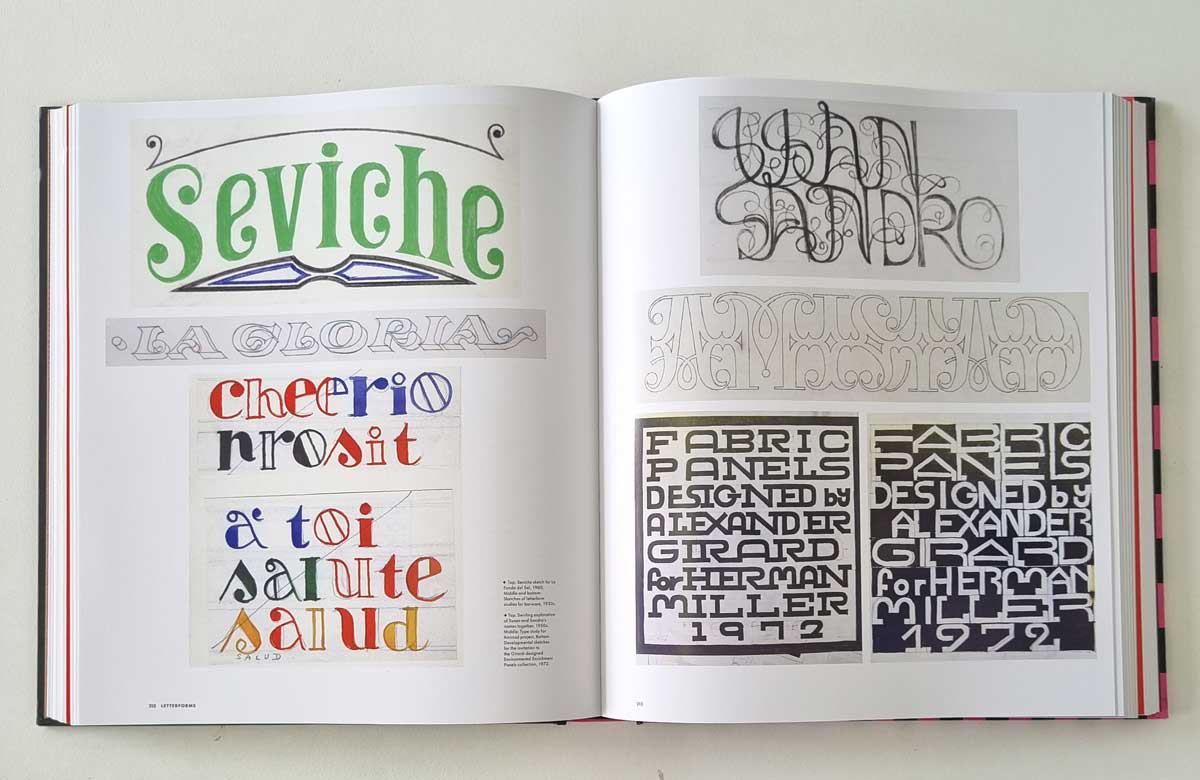 Seviche
LA GLORIA
cheerio
nrosit
a toi
salute
salud
SALUD
Top: Seviche sketch for La
Fonda del Sol, 1960.
Middle and bottom:
Sketches of letterform
studies for barware, 1950s.
Top: Swirling exploration
of Susan and Sandro's
names together, 1950s.
Middle: Type study for
Amistad project. Bottom:
Developmental sketches
for the invitation to
the Girard-designed
Environmental Enrichment
Panels collection, 1972.
LETTERFORMS
SUSAN
SANDRO
AMISTAD
FABRIC
PANELS
DESIGNED by
ALEXANDER
GIRARD
for HERMAN
MILLER
1972
FABRIC
PANELS
DESIGNED by
ALEXANDER
GIRARD
for HERMAN
MILLER
1972